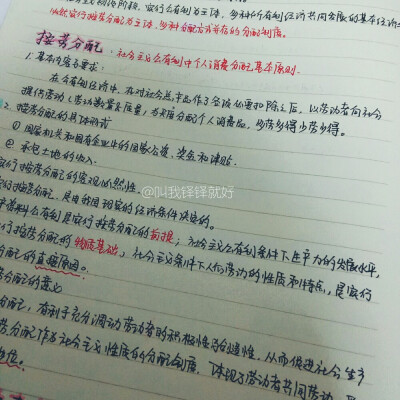 主义初级阶段,实行公有制为主体,多种所有制经济共同发展的基本经济
必然实行按劳分配为主体,多种分配方式并存的分配制度。
按劳分配:社会主义公有制中个人消费品分配基本原则.
1. 基本内容与要求:
在公有制经济中,在对社会总产品作了各项必要扣除之后,以劳动者向社会
提供劳动(劳动数量及质量)为尺度分配个人消费品,多劳多得少劳少得。
2. 按劳分配的具体形式
① 国家机关和国有企业中的国家公资、奖金和津贴.
② 承包土地的收入.
实行按劳分配的客观必然性.
行按劳分配,是由我国现实的经济条件决定的。
料公有制是实行按劳分配的前提;社会主义公有制条件下生产力的发展水平,
行按劳分配的物质基础,社会主义条件下人们劳动的性质和特点,是实行
分配的直接原因。
劳分配的意义
分配,有利于充分调动劳动者的积极性与创造性,从而促进社会生产
劳分配作为社会主义性质的分配制度,体现了劳动者共同劳动,平
地位.
@叫我铎铎就好